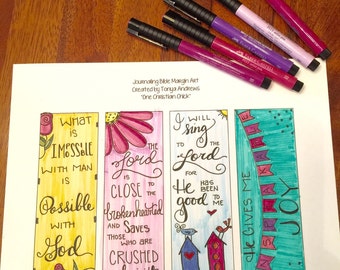 Journaling Bible Margin Art
Created by Tonya Andrews
"One Christian Chick"
WHAT
IS
IMPOSSIBLE
WITH MAN
IS
Possible
WITH
God
The
Lord
IS
CLOSE TO
the
brokenhearted
AND SAVES
THOSE
WHO ARE
CRUSHED
I WILL
sing
TO the
Lord
FOR
He HAS
BEEN
good TO
ME
He GIVES ME
JOY